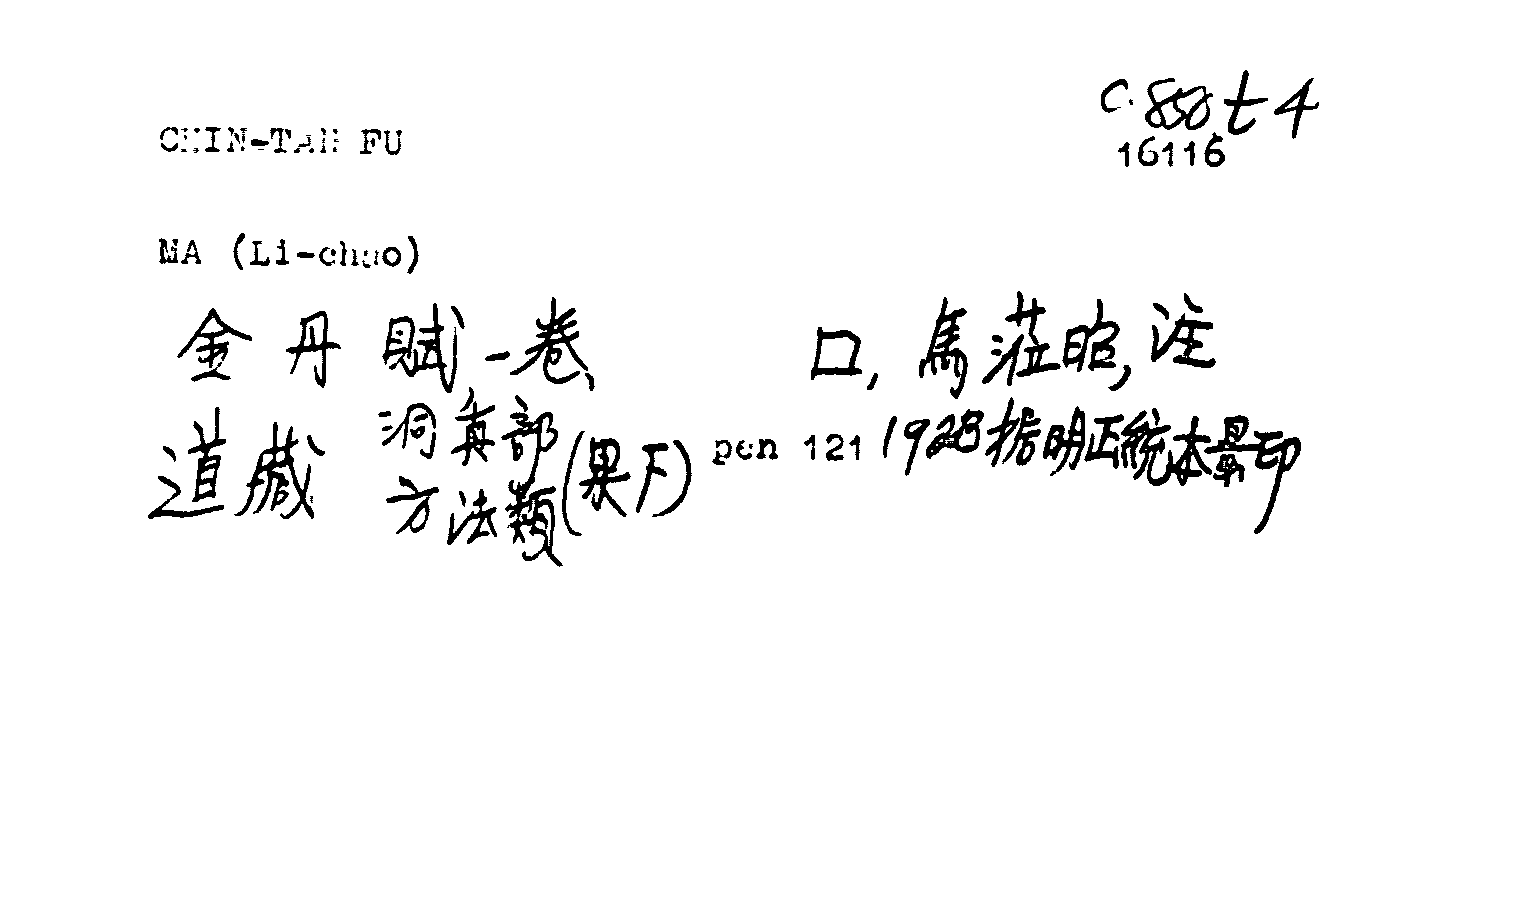 C. 858 t 4
CHIN-TAN FU
16116
MA (Li-chao)
金丹賦一卷、 口, 馬蒞昭, 注
道藏 洞真部 方法類 (果下) pen 121 1923 据明正統本景印